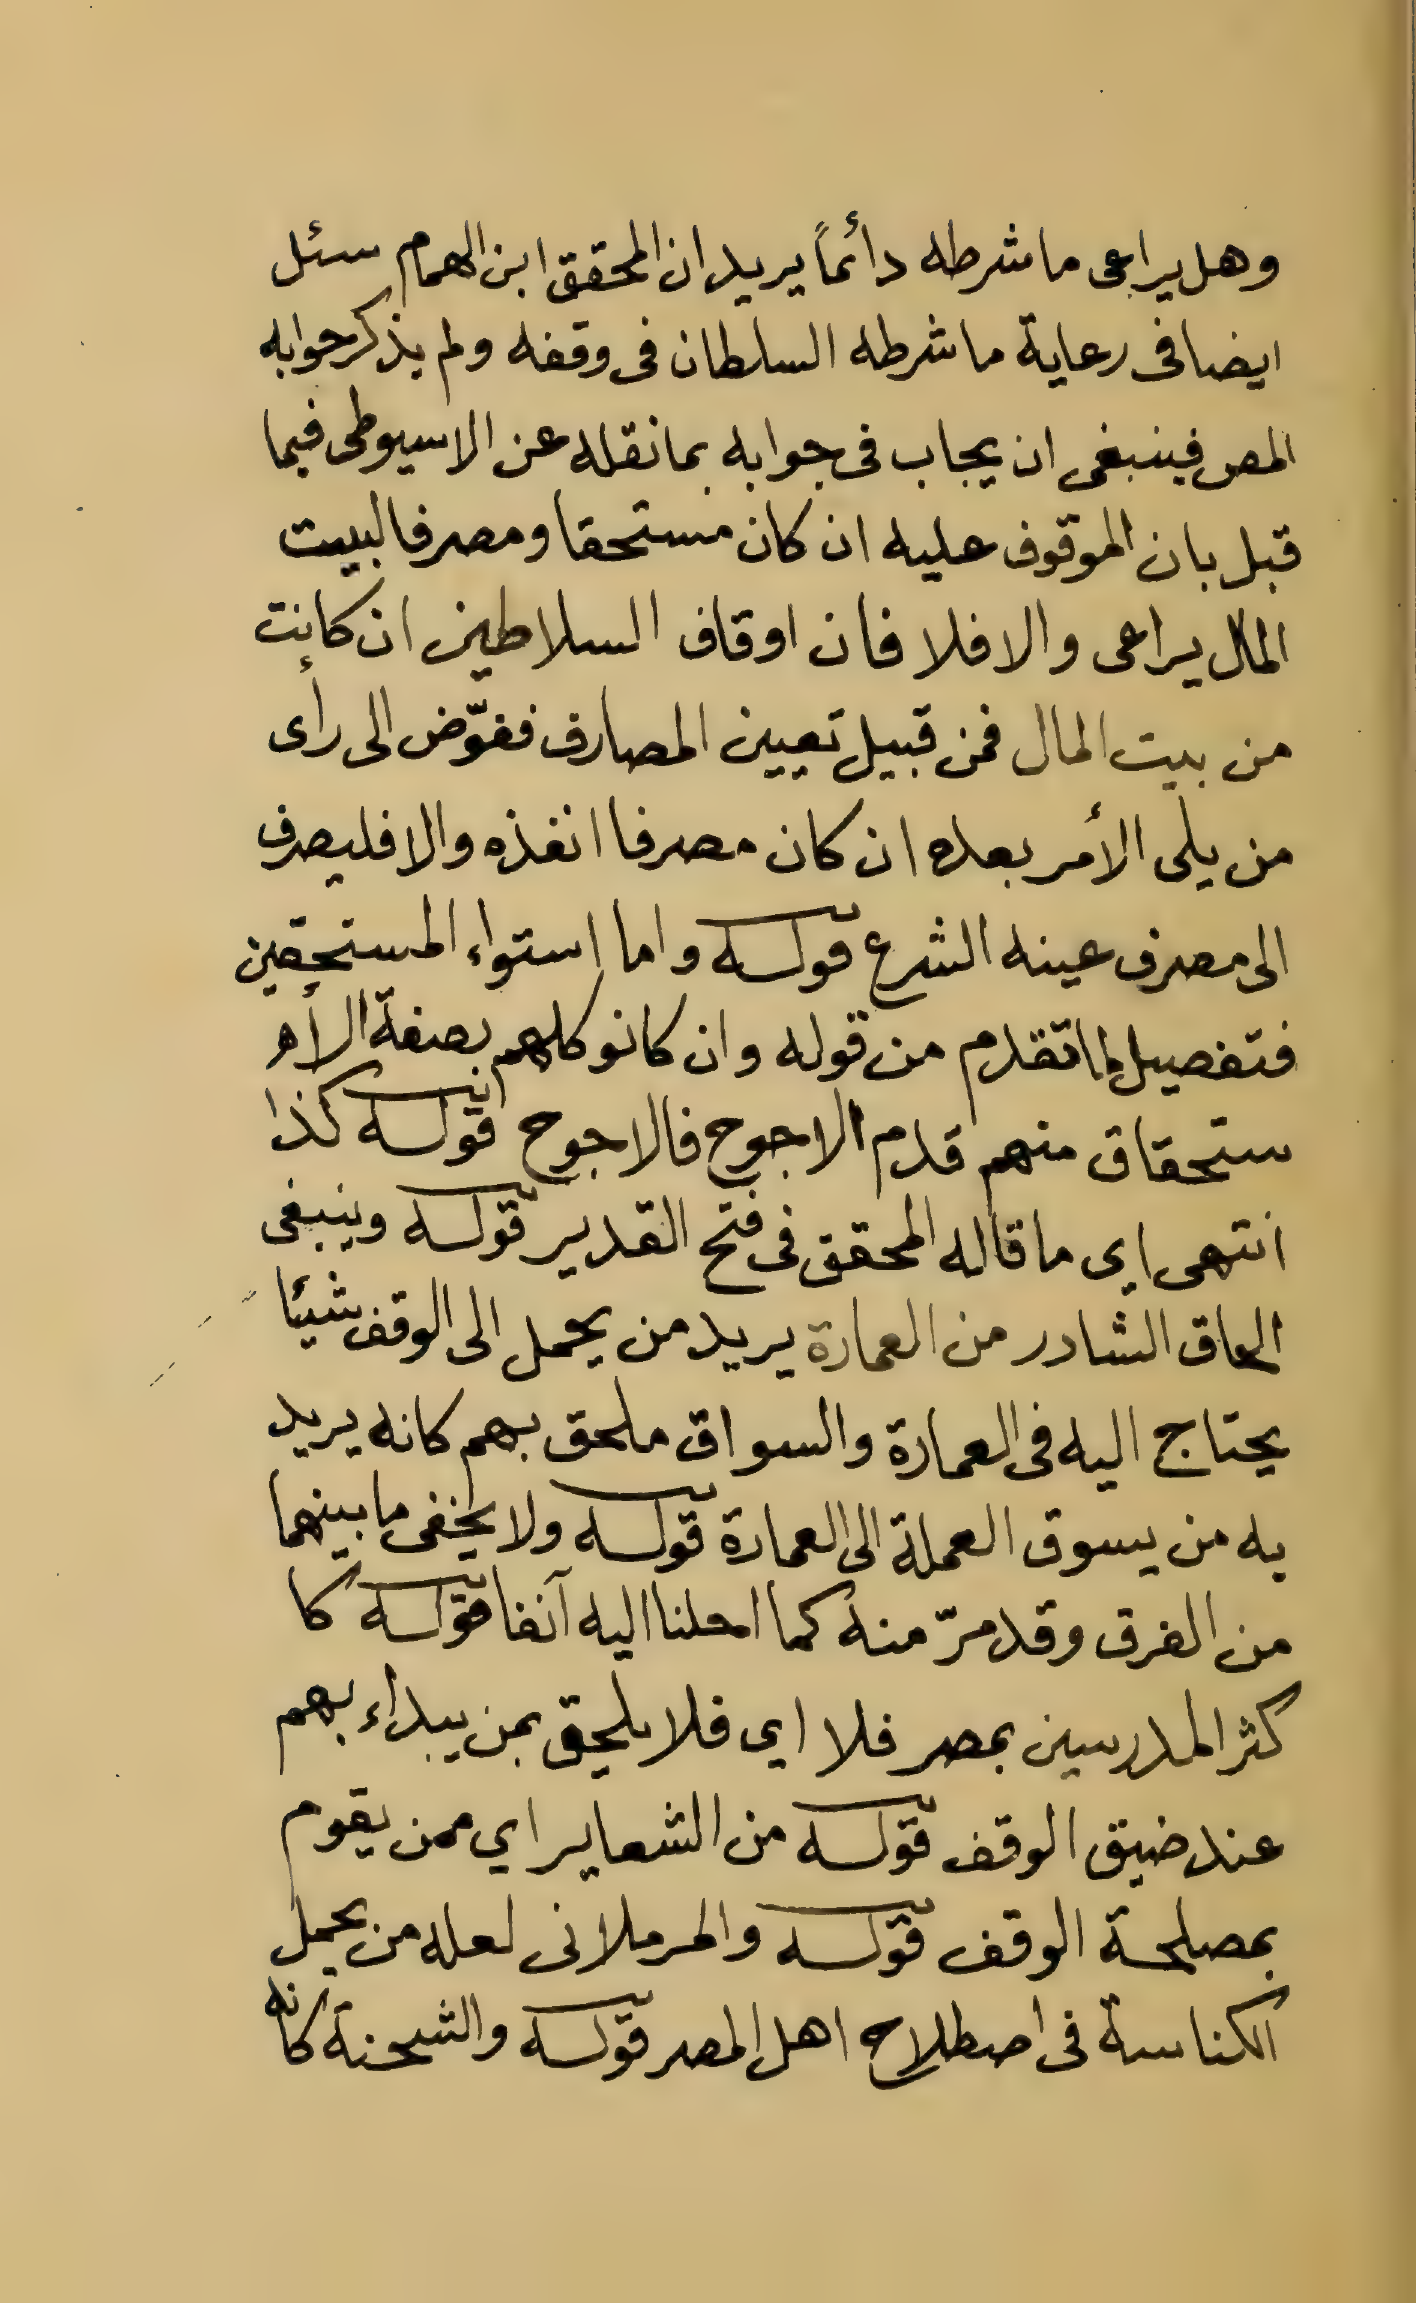 وهل يراعى ما شرطه دائماً يريد ان المحقق ابن الهمام سئل
ايضا فى رعاية ما شرطه السلطان فى وقفه ولم يذكر جوابه
المص فينبغى ان يجاب فى جوابه بما نقله عن الاسيوطى فيما
قبل بان الموقوف عليه ان كان مستحقا ومصرفا لبيت
المال يراعى والا فلا فان اوقاف السلاطين ان كانت
من بيت المال فمن قبيل تعيين المصارف ففوّض الى رأى
من يلى الأمر بعده ان كان مصرفا انفذه والا فليصرف
الى مصرف عينه الشرع قوله واما استواء المستحقين
فتفصيل لما تقدم من قوله وان كانو كلهم بصفة الأ
ستحقاق منهم قدم الاحوج فالاحوج قوله كذا
انتهى اى ما قاله المحقق فى فتح القدير قوله وينبغى
الحاق الشادر من العمارة يريد من يحمل الى الوقف شيئا
يحتاج اليه فى العمارة والسواق ملحق بهم كانه يريد
به من يسوق العملة الى العمارة قوله ولا يخفى ما بينهما
من الفرق وقد مرّ منه كما احلنا اليه آنفا قوله كا
كثر المدرسين بمصر فلا اى فلا يلحق بمن يبداء بهم
عند ضيق الوقف قوله من الشعاير اي ممن يقوم
بمصلحة الوقف قوله والمرملانى لعله من يحمل
الكناسة فى اصطلاح اهل المصر قوله والشحنة كانه